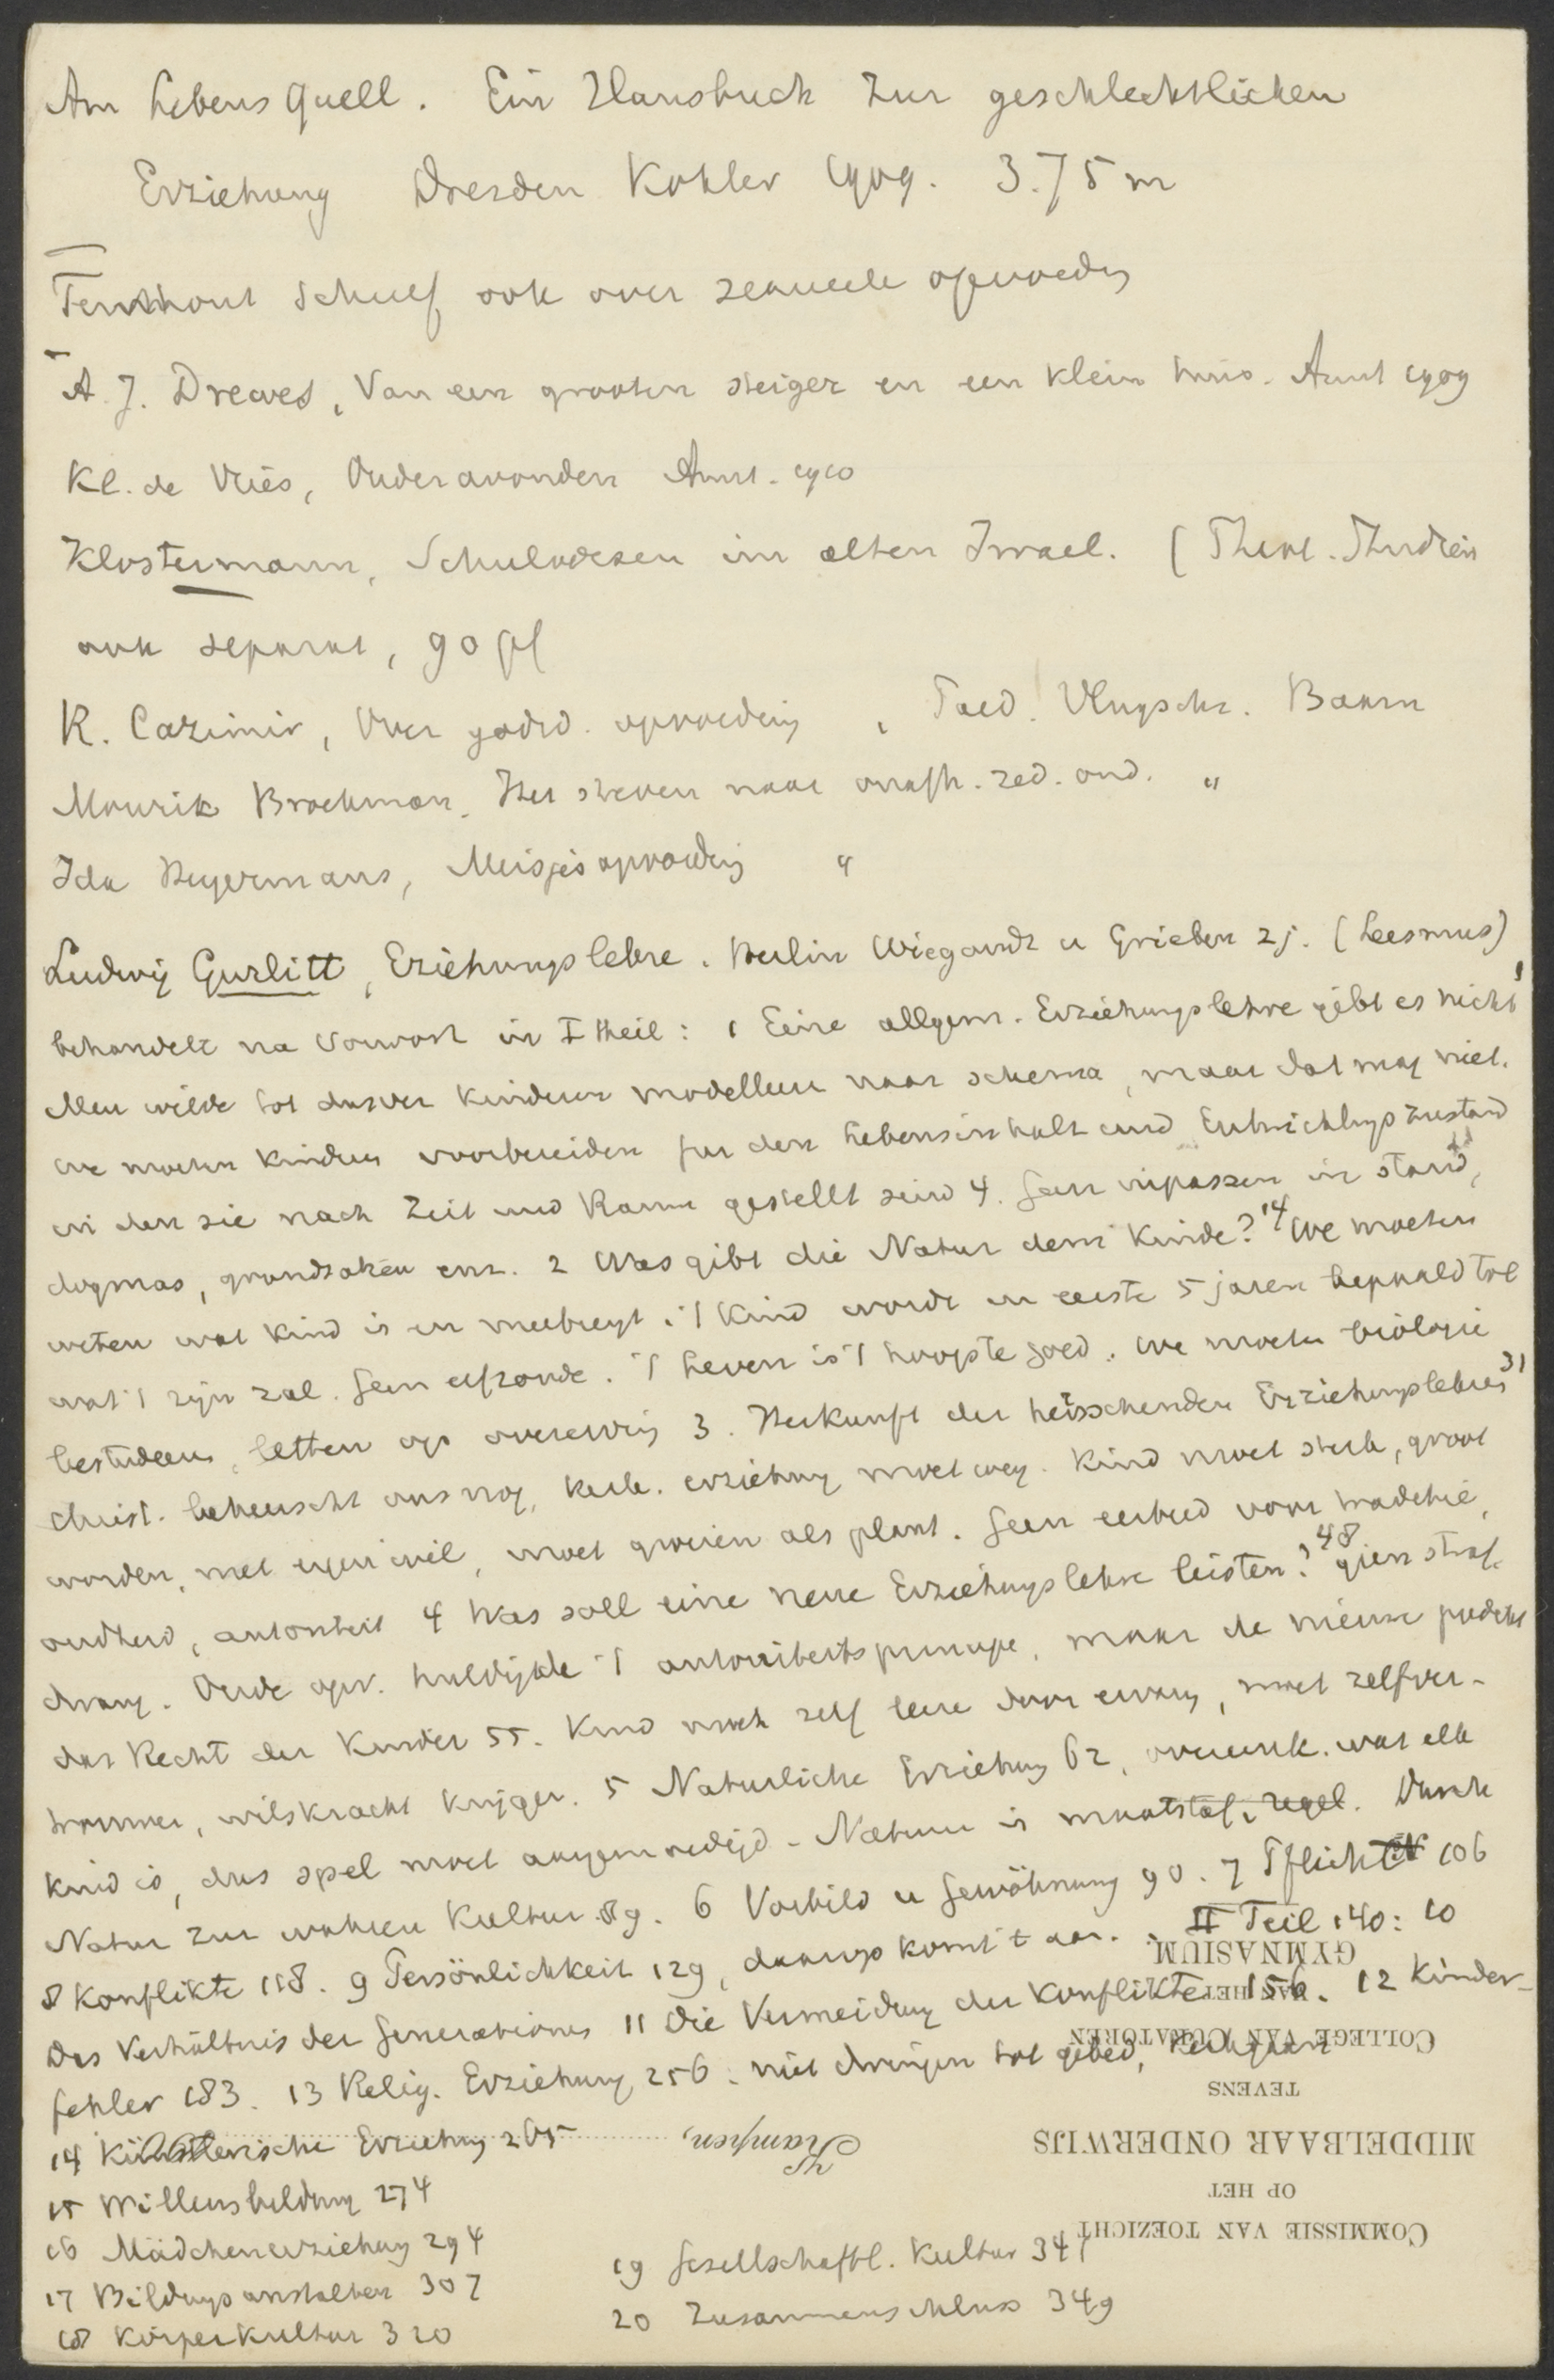 Am Lebensquell. Ein Hausbuch zur geschlechtlichen
Erziehung Dresden Kohler 1909. 3.75 m
Schreef ook over sexueele opvoedg
A. J. Dreaves, Van een grooten steiger en een klein huis. Amst 1909
Kl. de Vries, Ouderavonden Amst. 1910
Klostermann, Schulwesen im alten Israel. (Theol. Studien
ook separat, 90 pf
R. Casimir, Over godsd. opvoeding, Paed. Vlugschr. Baarn
Mourik Broekman. Het streven naar onafh. zed. ond. "
Ida Heyermans, Meisjesopvoeding "
Ludwig Gurlitt, Erziehungslehre. Berlin Wiegandt u Grieben z j. (Leesmus)
behandelt na Vorwort in I theil: 1 Eine allgem. Erziehungslehre gibt es nicht 1
Men wilde tot dusver kinderen modelleeren naar schema, maar dat mag niet.
we moeten kinderen voorbereiden fur den Lebensinhalt und Entwicklungszustand
in den sie nach Zeit und Raum gestellt sind 4. Geen inpassen in stand,
dogmas, grondzaken enz. 2 Was gibt die Natur dem Kinde? 14 We moeten
weten wat kind is en meebrengt. 't Kind wordt in eerste 5 jaren bepaald tot
wat 't zijn zal. Geen erfzonde. 't Leven is 't hoogste goed. We moeten biologie
bestudeeren, letten op overerving 3. Herkunft der herrschenden Erziehungslehres 31
Christ. beheerscht ons nog, kerk. erziehung moet weg. Kind moet sterk, groot
worden, met eigen wil, moet groeien als plant. Geen eerbied voor traditie,
oudheid, autoriteit 4 Was soll eine neue Erziehungslehre leisten? 48 geen straf,
dwang. Oude opv. huldigde 't autoriteitsprincipe, maar de nieuwe predikt
das Recht der Kinder 55. Kind moet zelf leeren door ervarg, moet zelfver-
trouwen, wilskracht krijgen. 5 Naturliche Erziehung 62, overeenk. wat elk
kind is, dus spel moet aangemoedigd - Natuur is maatstaf, regel. Durch
Natur zur wahren Kultur 89. 6 Vorbild u Gewöhnung 90. 7 Pflichten 106
8 Konflikte 118. 9 Persönlichkeit 129, daarop komt 't aan. II Teil 140: 10
Das Verhältnis der Generationen 11 Die Vermeidung der Konflikte 156. 12 Kinder-
fehler 183. 13 Relig. Erziehung 256. niet dwingen tot gebed, kerkgaan
14 Künstlerische Erziehung 265
15 Willensbildung 274
16 Mädchenerziehung 294
17 Bildungsanstalten 307
18 Körperkultur 320
19 Gesellschaftl. Kultur 341
20 Zusammenschluss 349
COMMISSIE VAN TOEZICHT
OP HET
MIDDELBAAR ONDERWIJS
TEVENS
COLLEGE VAN CURATOREN
VAN HET
GYMNASIUM.
Kampen,